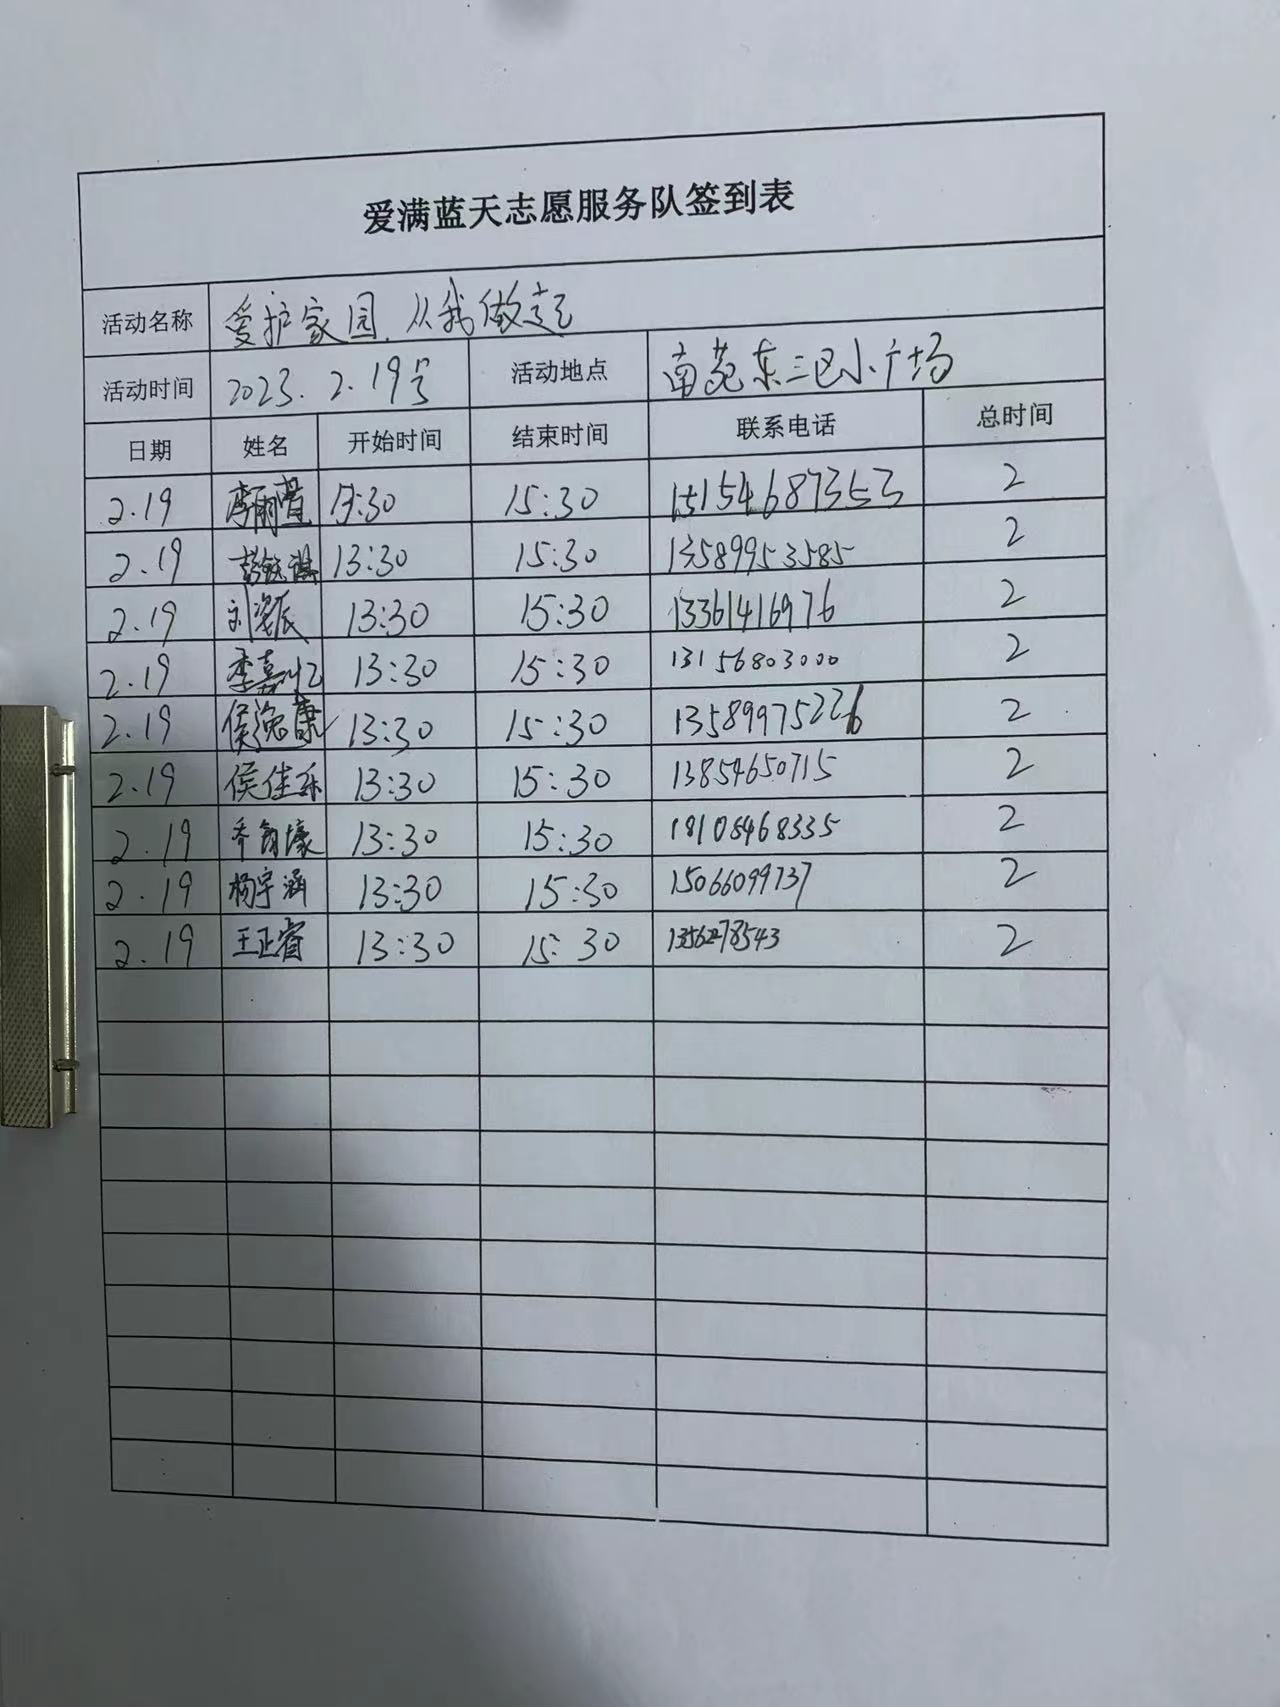 爱满蓝天志愿服务队签到表
活动名称 爱护家园.从我做起
活动时间 2023.2.19号 活动地点 南苑东三区小广场
日期 姓名 开始时间 结束时间 联系电话 总时间
2.19 李雨萱 13:30 15:30 15154687353 2
2.19 13:30 15:30 13589953585 2
2.19 刘姿辰 13:30 15:30 13361416976 2
2.19 李嘉忆 13:30 15:30 13156803000 2
2.19 侯逸康 13:30 15:30 13589975226 2
2.19 侯佳乐 13:30 15:30 13854650715 2
2.19 13:30 15:30 18105468335 2
2.19 杨宇涵 13:30 15:30 15066099737 2
2.19 王正睿 13:30 15:30 13562278543 2